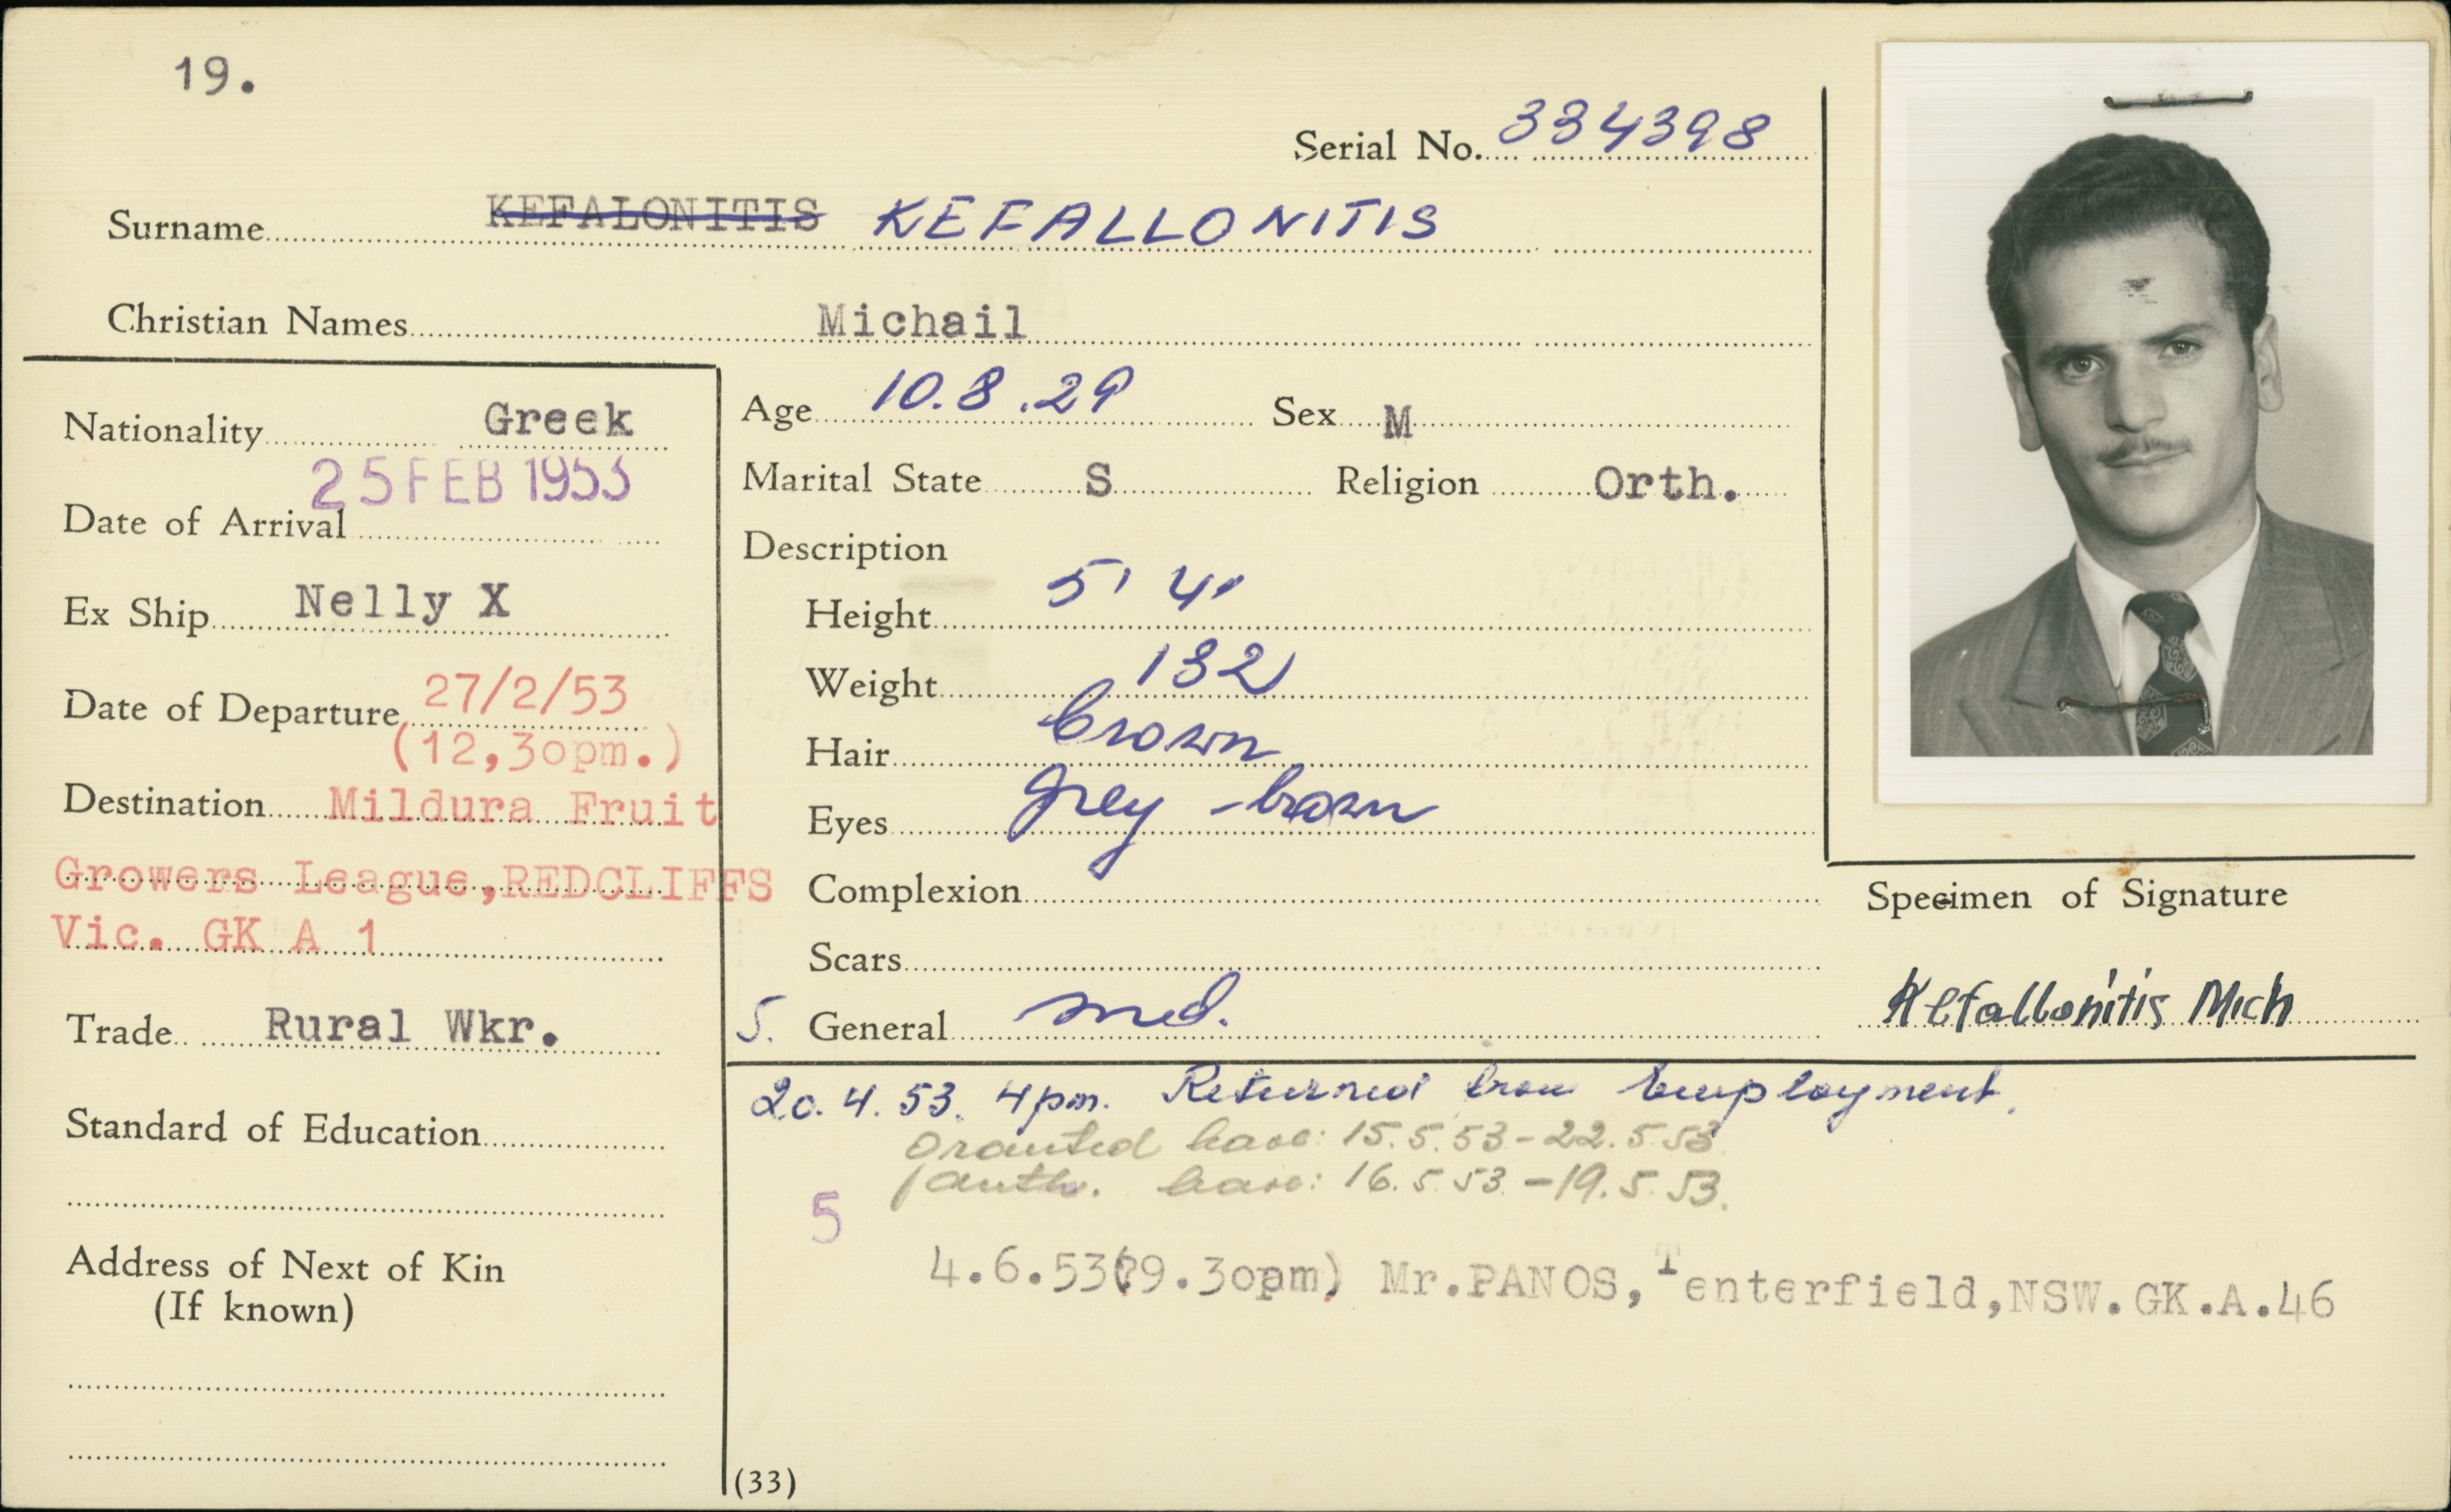 19.
Serial No. 334398
Surname KEFALONITIS KEFALLONITIS
Christian Names Michail
Nationality Greek
25 FEB 1953
Date of Arrival
Ex Ship Nelly X
Date of Departure 27/2/53
(12,30pm.)
Destination Mildura Fruit
Growers League,REDCLIFFS
Vic. GK A 1
Trade Rural Wkr.
Standard of Education
Address of Next of Kin
(If known)
Age 10.8.29 Sex M
Marital State S Religion Orth.
Description
Height 5' 4"
Weight 132
Hair brown
Eyes grey-brown
Complexion
Scars
5. General med.
Specimen of Signature
Kefallonitis Mich
20.4.53. 4pm. Returned from Employment.
Granted leave: 15.5.53-22.5.53
auth. leave: 16.5.53-19.5.53.
5
4.6.53(9.30pm) Mr.PANOS,Tenterfield,NSW.GK.A.46
(33)